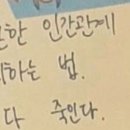 한 인간관계
하는 법.
다 죽인다.